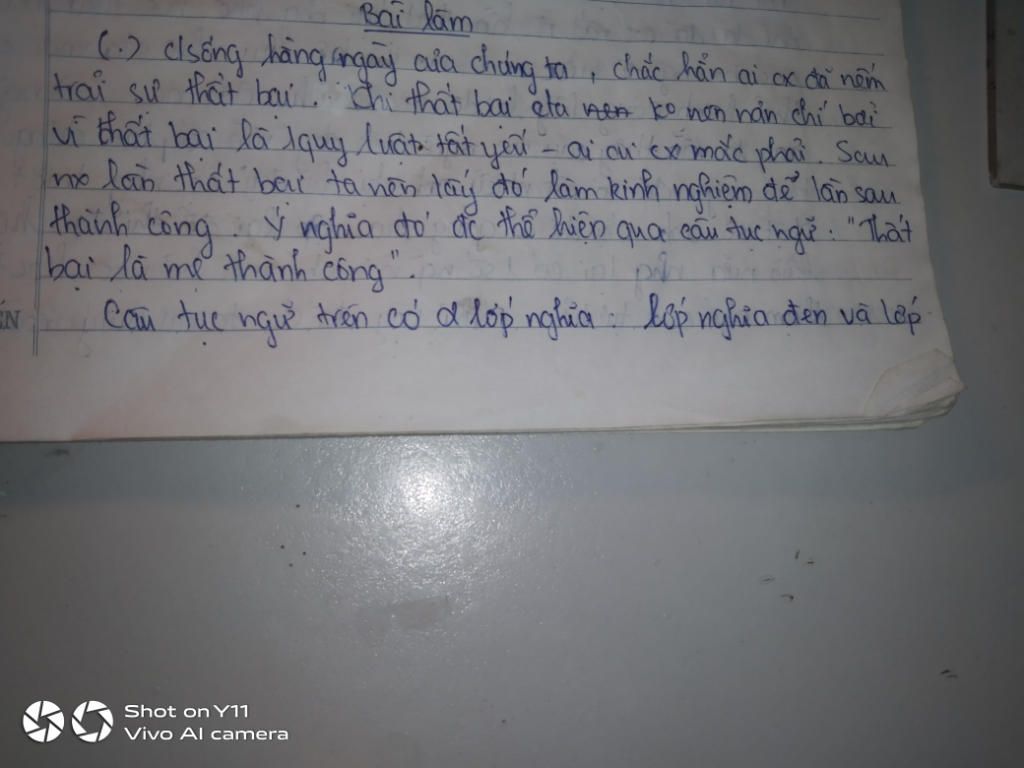 Bài làm
(.) c/sống hàng ngày của chúng ta, chắc hẳn ai cx đã nếm
trải sự thất bại. Khi thất bại cta nen ko nen nản chí bởi
vì thất bại là 1 quy luật tất yếu - ai ai cx mắc phải. Sau
mo lần thất bại ta nên lấy đó làm kinh nghiệm để lần sau
thành công. Ý nghĩa đó đc thể hiện qua câu tục ngữ: "Thất
bại là mẹ thành công".
Câu tục ngữ trên có 2 lớp nghĩa: lớp nghĩa đen và lớp
ẾN
Shot on Y11
Vivo AI camera